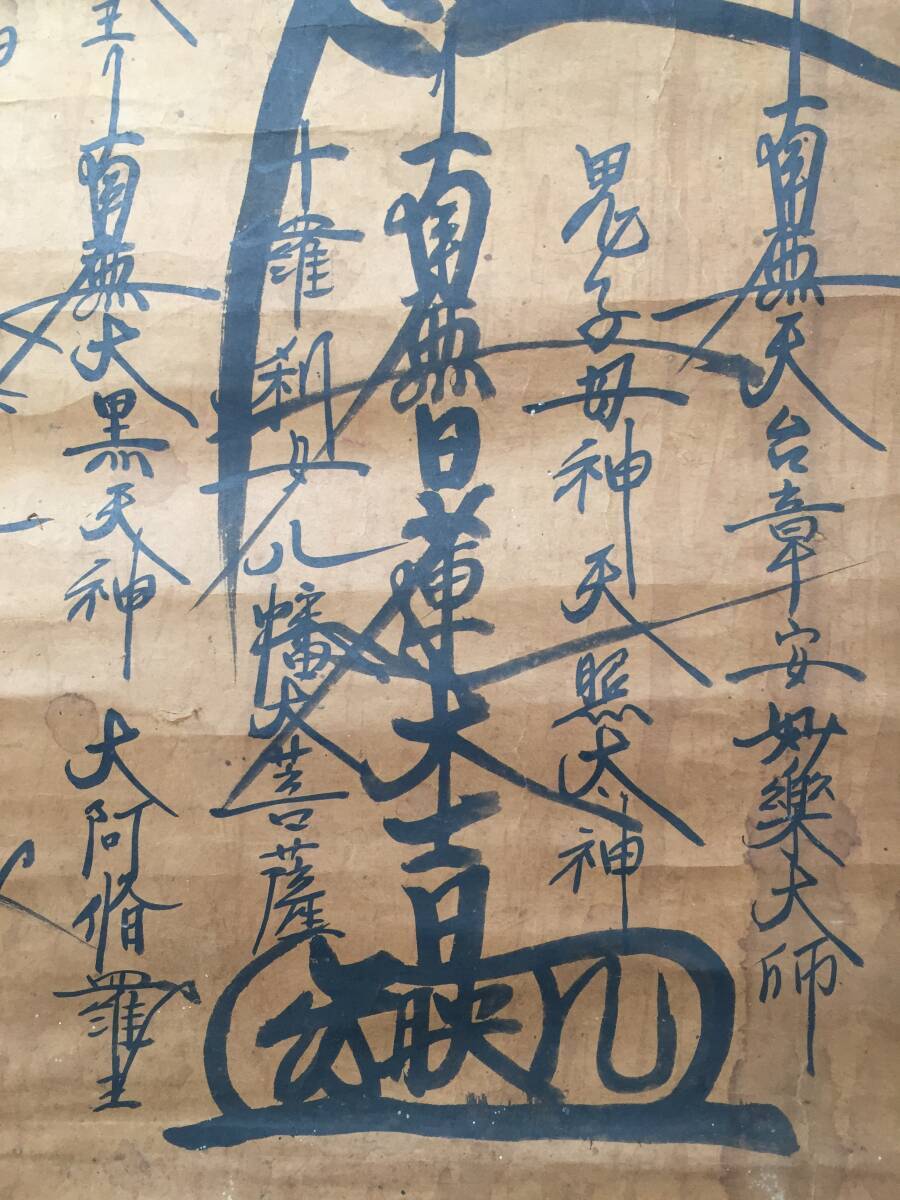 南無天台章安妙樂大師
鬼子母神 天照太神
南無日蓮大士 日映
十羅刹女 八幡大菩薩
南無大黒天神 大阿脩羅王